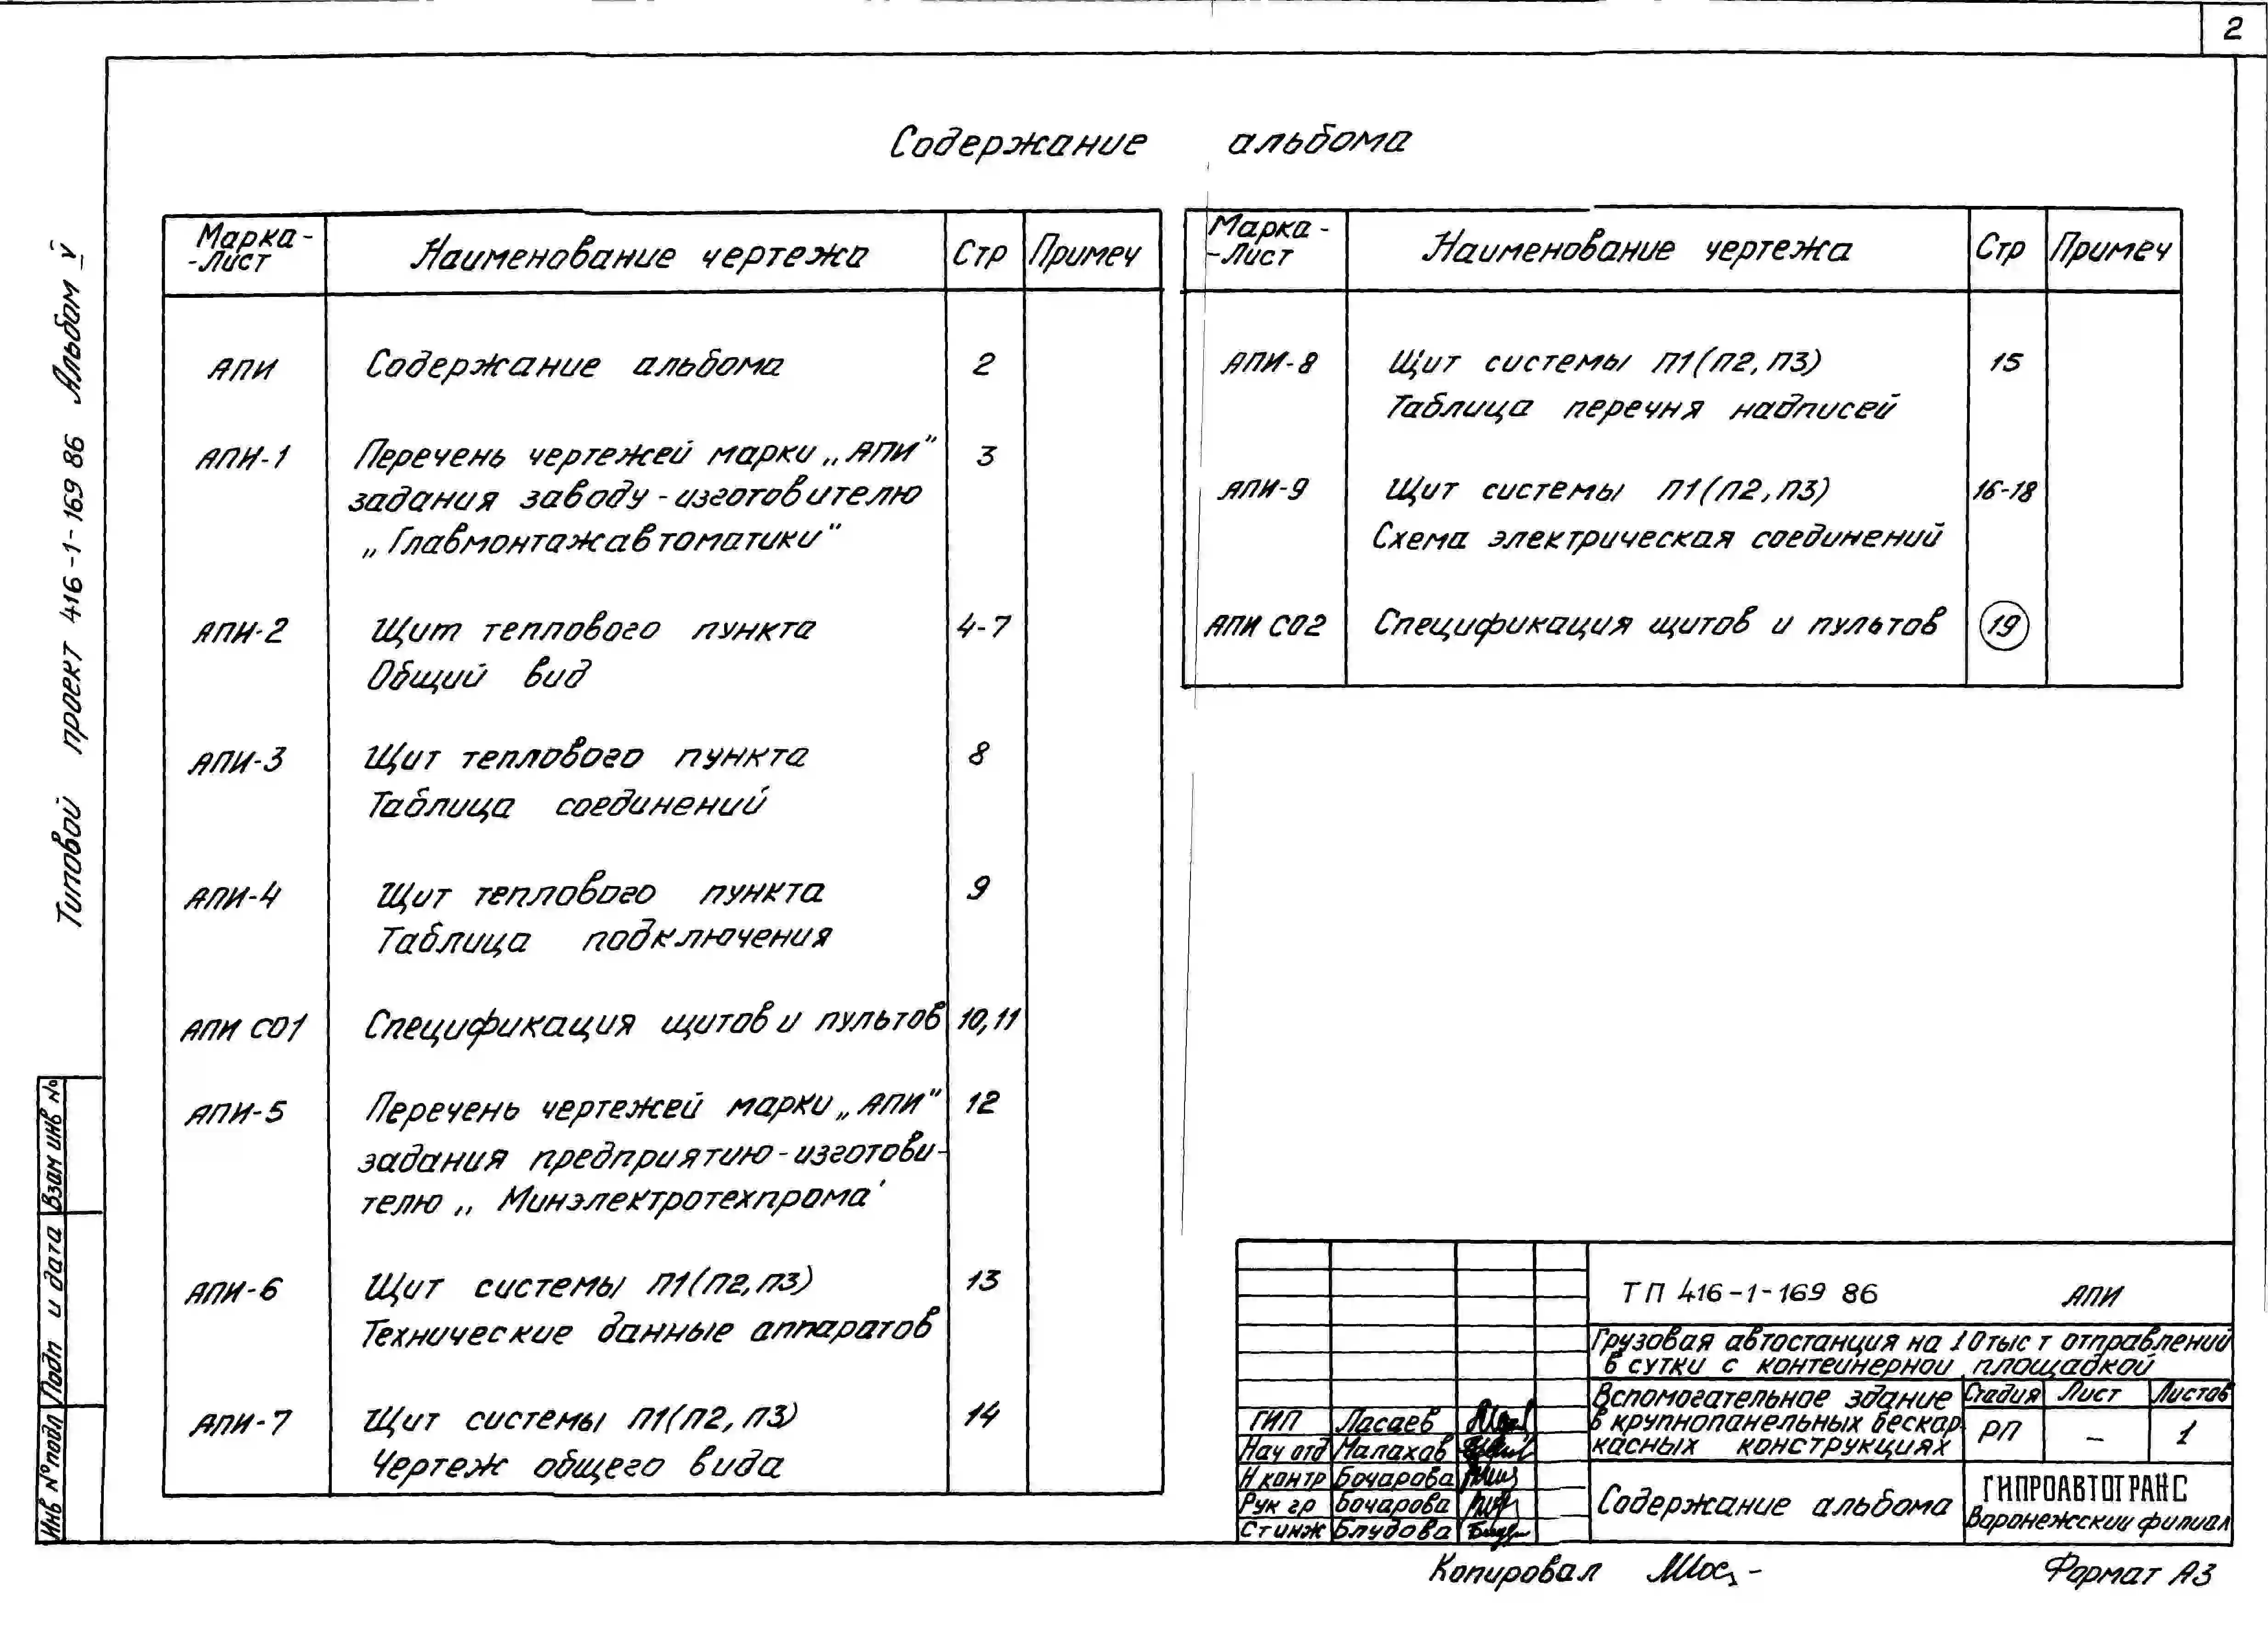 2
Содержание альбома
Марка-
-Лист
Наименование чертежа
Стр
Примеч
АПИ
Содержание альбома
2
АПИ-1
Перечень чертежей марки „АПИ"
3
задания заводу-изготовителю
„Главмонтажавтоматики"
АПИ-2
Щит теплового пункта
4-7
Общий вид
АПИ-3
Щит теплового пункта
8
Таблица соединений
АПИ-4
Щит теплового пункта
9
Таблица подключения
АПИ СО1
Спецификация щитов и пультов
10,11
АПИ-5
Перечень чертежей марки „АПИ"
12
задания предприятию-изготови-
телю „ Минэлектротехпрома'
АПИ-6
Щит системы П1(П2,П3)
13
Технические данные аппаратов
АПИ-7
Щит системы П1(П2,П3)
14
Чертеж общего вида
Марка-
-Лист
Наименование чертежа
Стр
Примеч
АПИ-8
Щит системы П1(П2,П3)
15
Таблица перечня надписей
АПИ-9
Щит системы П1(П2,П3)
16-18
Схема электрическая соединений
АПИ СО2
Спецификация щитов и пультов
19
Типовой проект 416-1-169 86 Альбом V
Взам инв №
Подп и дата
Инв № подл
ТП 416-1-169 86 АПИ
Грузовая автостанция на 10тыс т отправлений
в сутки с контейнерной площадкой
Вспомогательное здание
в крупнопанельных бескар
касных конструкциях
Стадия
Лист
Листов
РП
–
1
ГИП Ласаев
Нач отд Малахов
Н контр Бочарова
Рук гр Бочарова
Ст инж Блудова
Содержание альбома
ГИПРОАВТОТРАНС
Воронежский филиал
Копировал
Формат А3